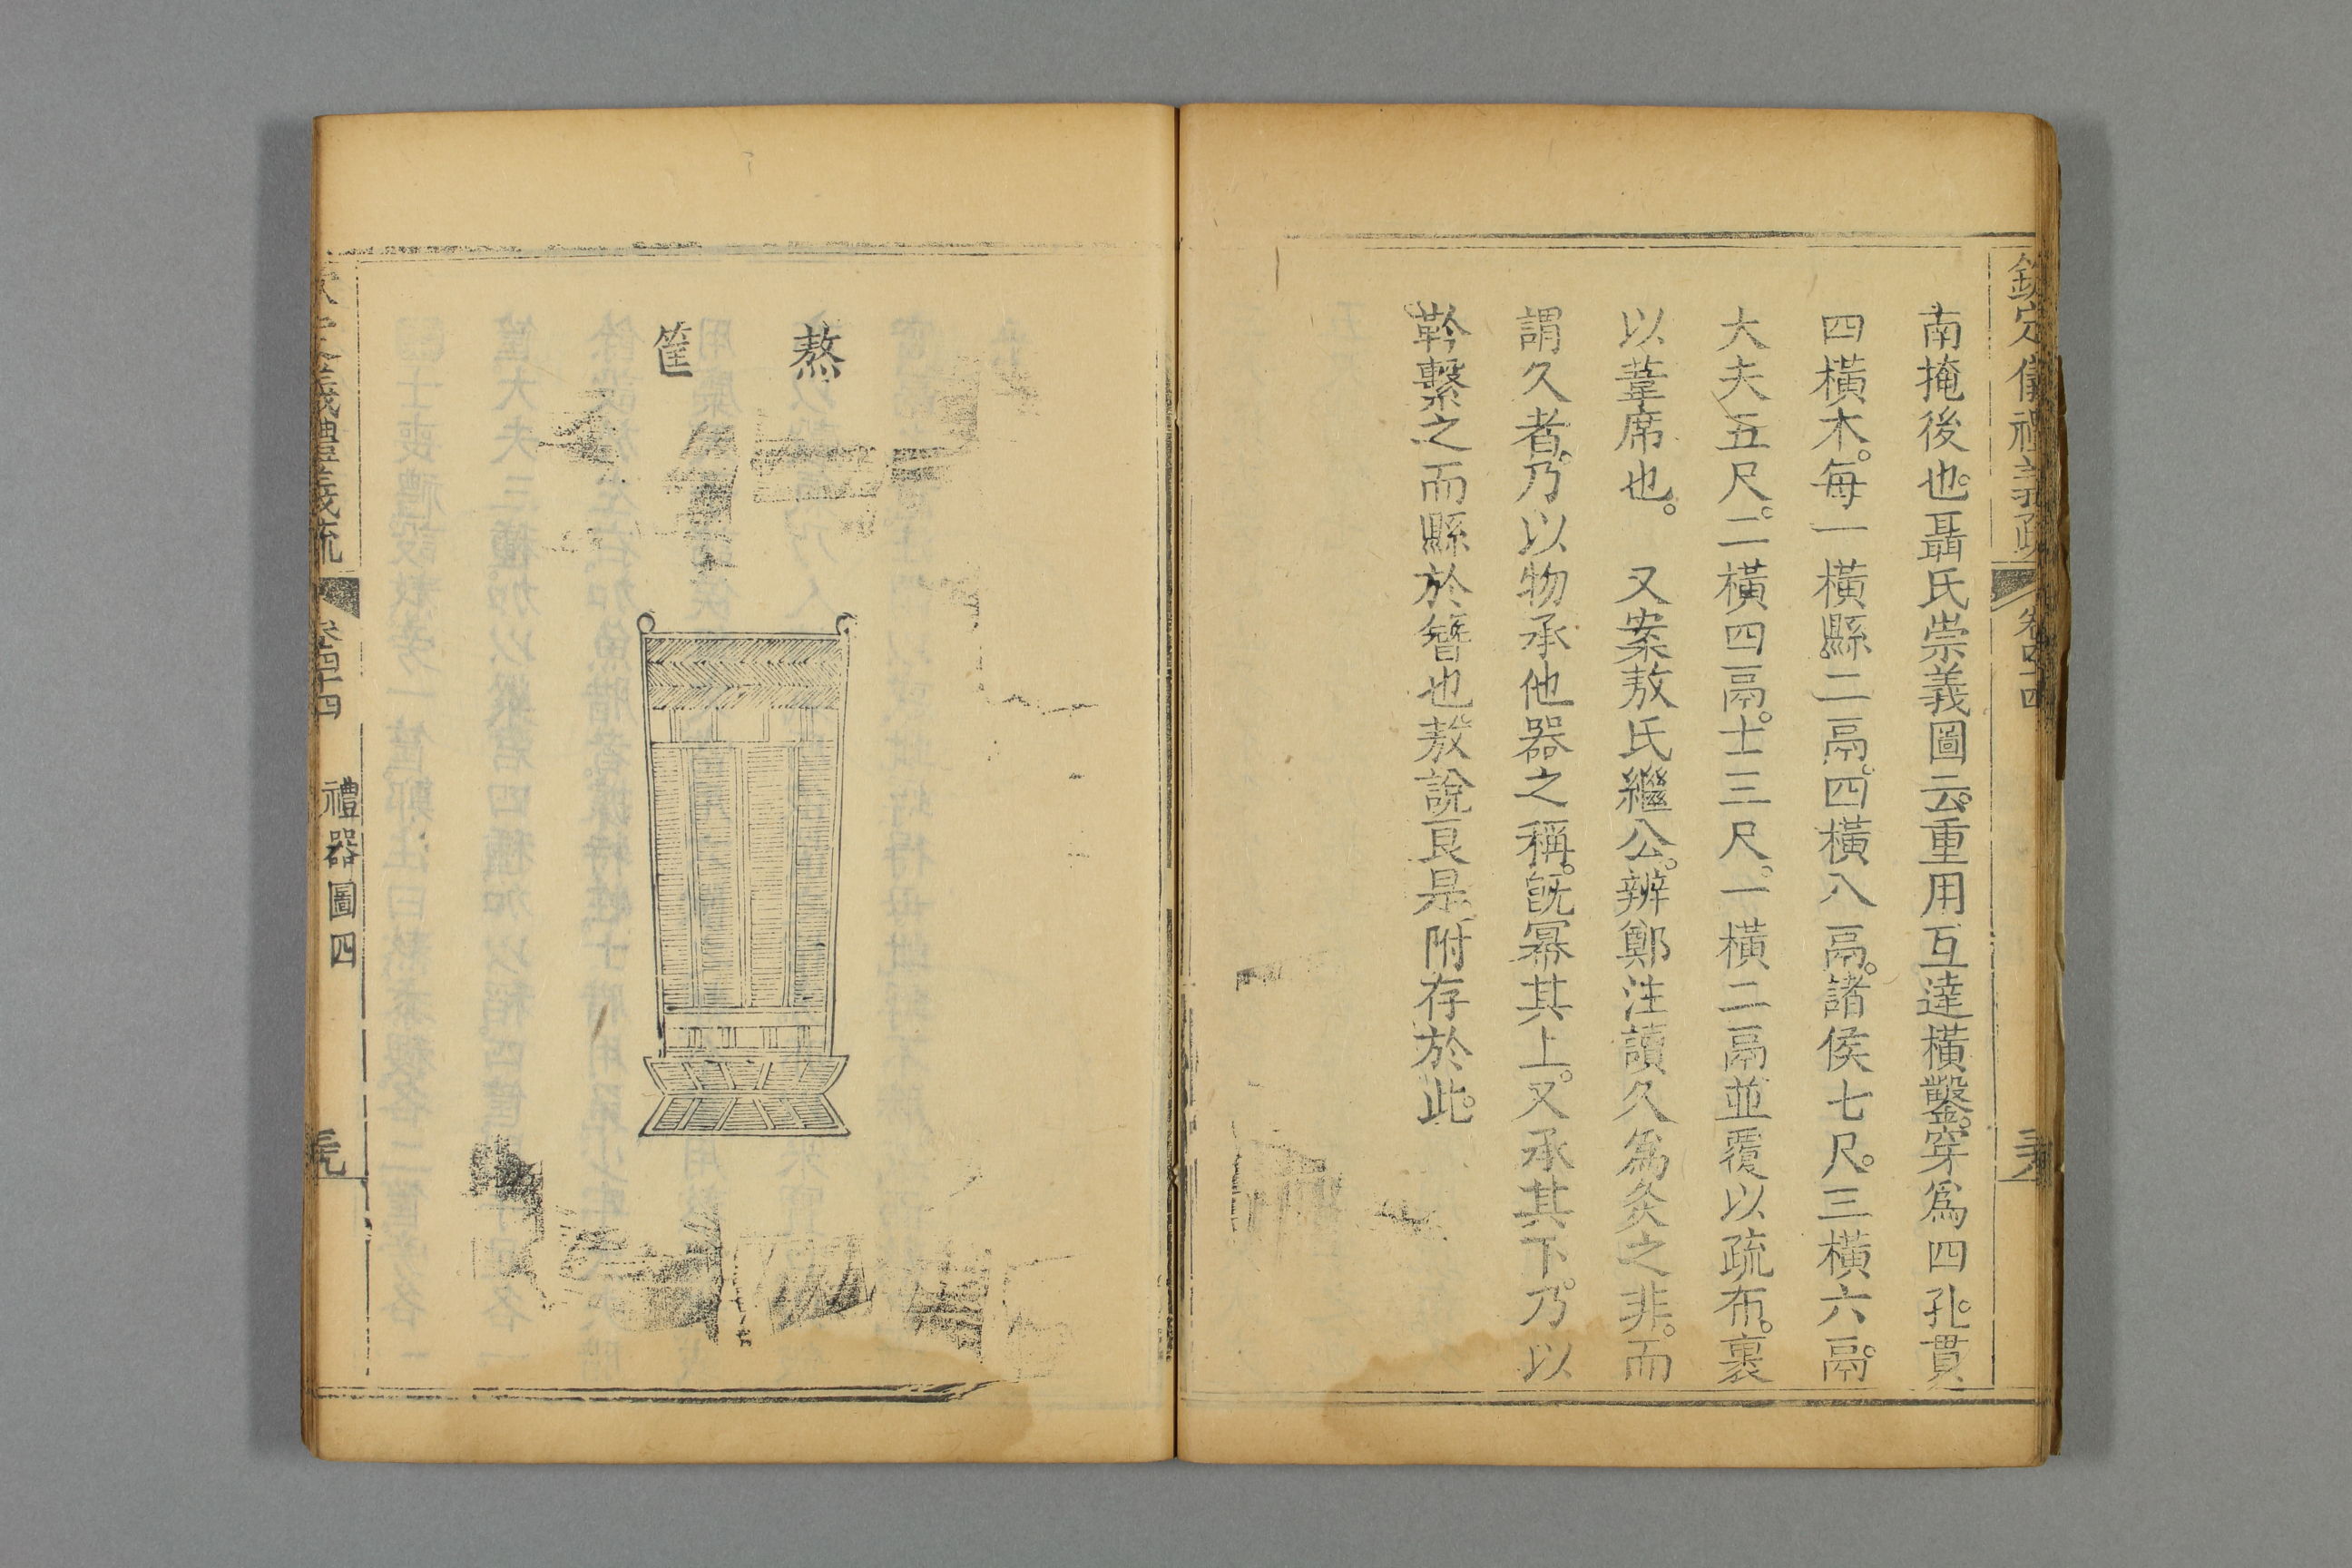 欽定儀禮義疏 卷四十四
南掩後也。聶氏崇義圖云。重用互達橫鑿。穿爲四孔。貫
四橫木。每一橫縣二鬲。四橫八鬲。諸侯七尺。三橫六鬲。
大夫五尺。二橫四鬲。士三尺。一橫二鬲並覆以疏布。裹
以葦席也。 又案敖氏繼公。辨鄭注讀久爲灸之非。而
謂久者。乃以物承他器之稱。旣冪其上。又承其下。乃以
靲繫之而縣於簪也敖說良是附存於此。
熬
筐
義禮義疏 卷四十四 禮器圖四